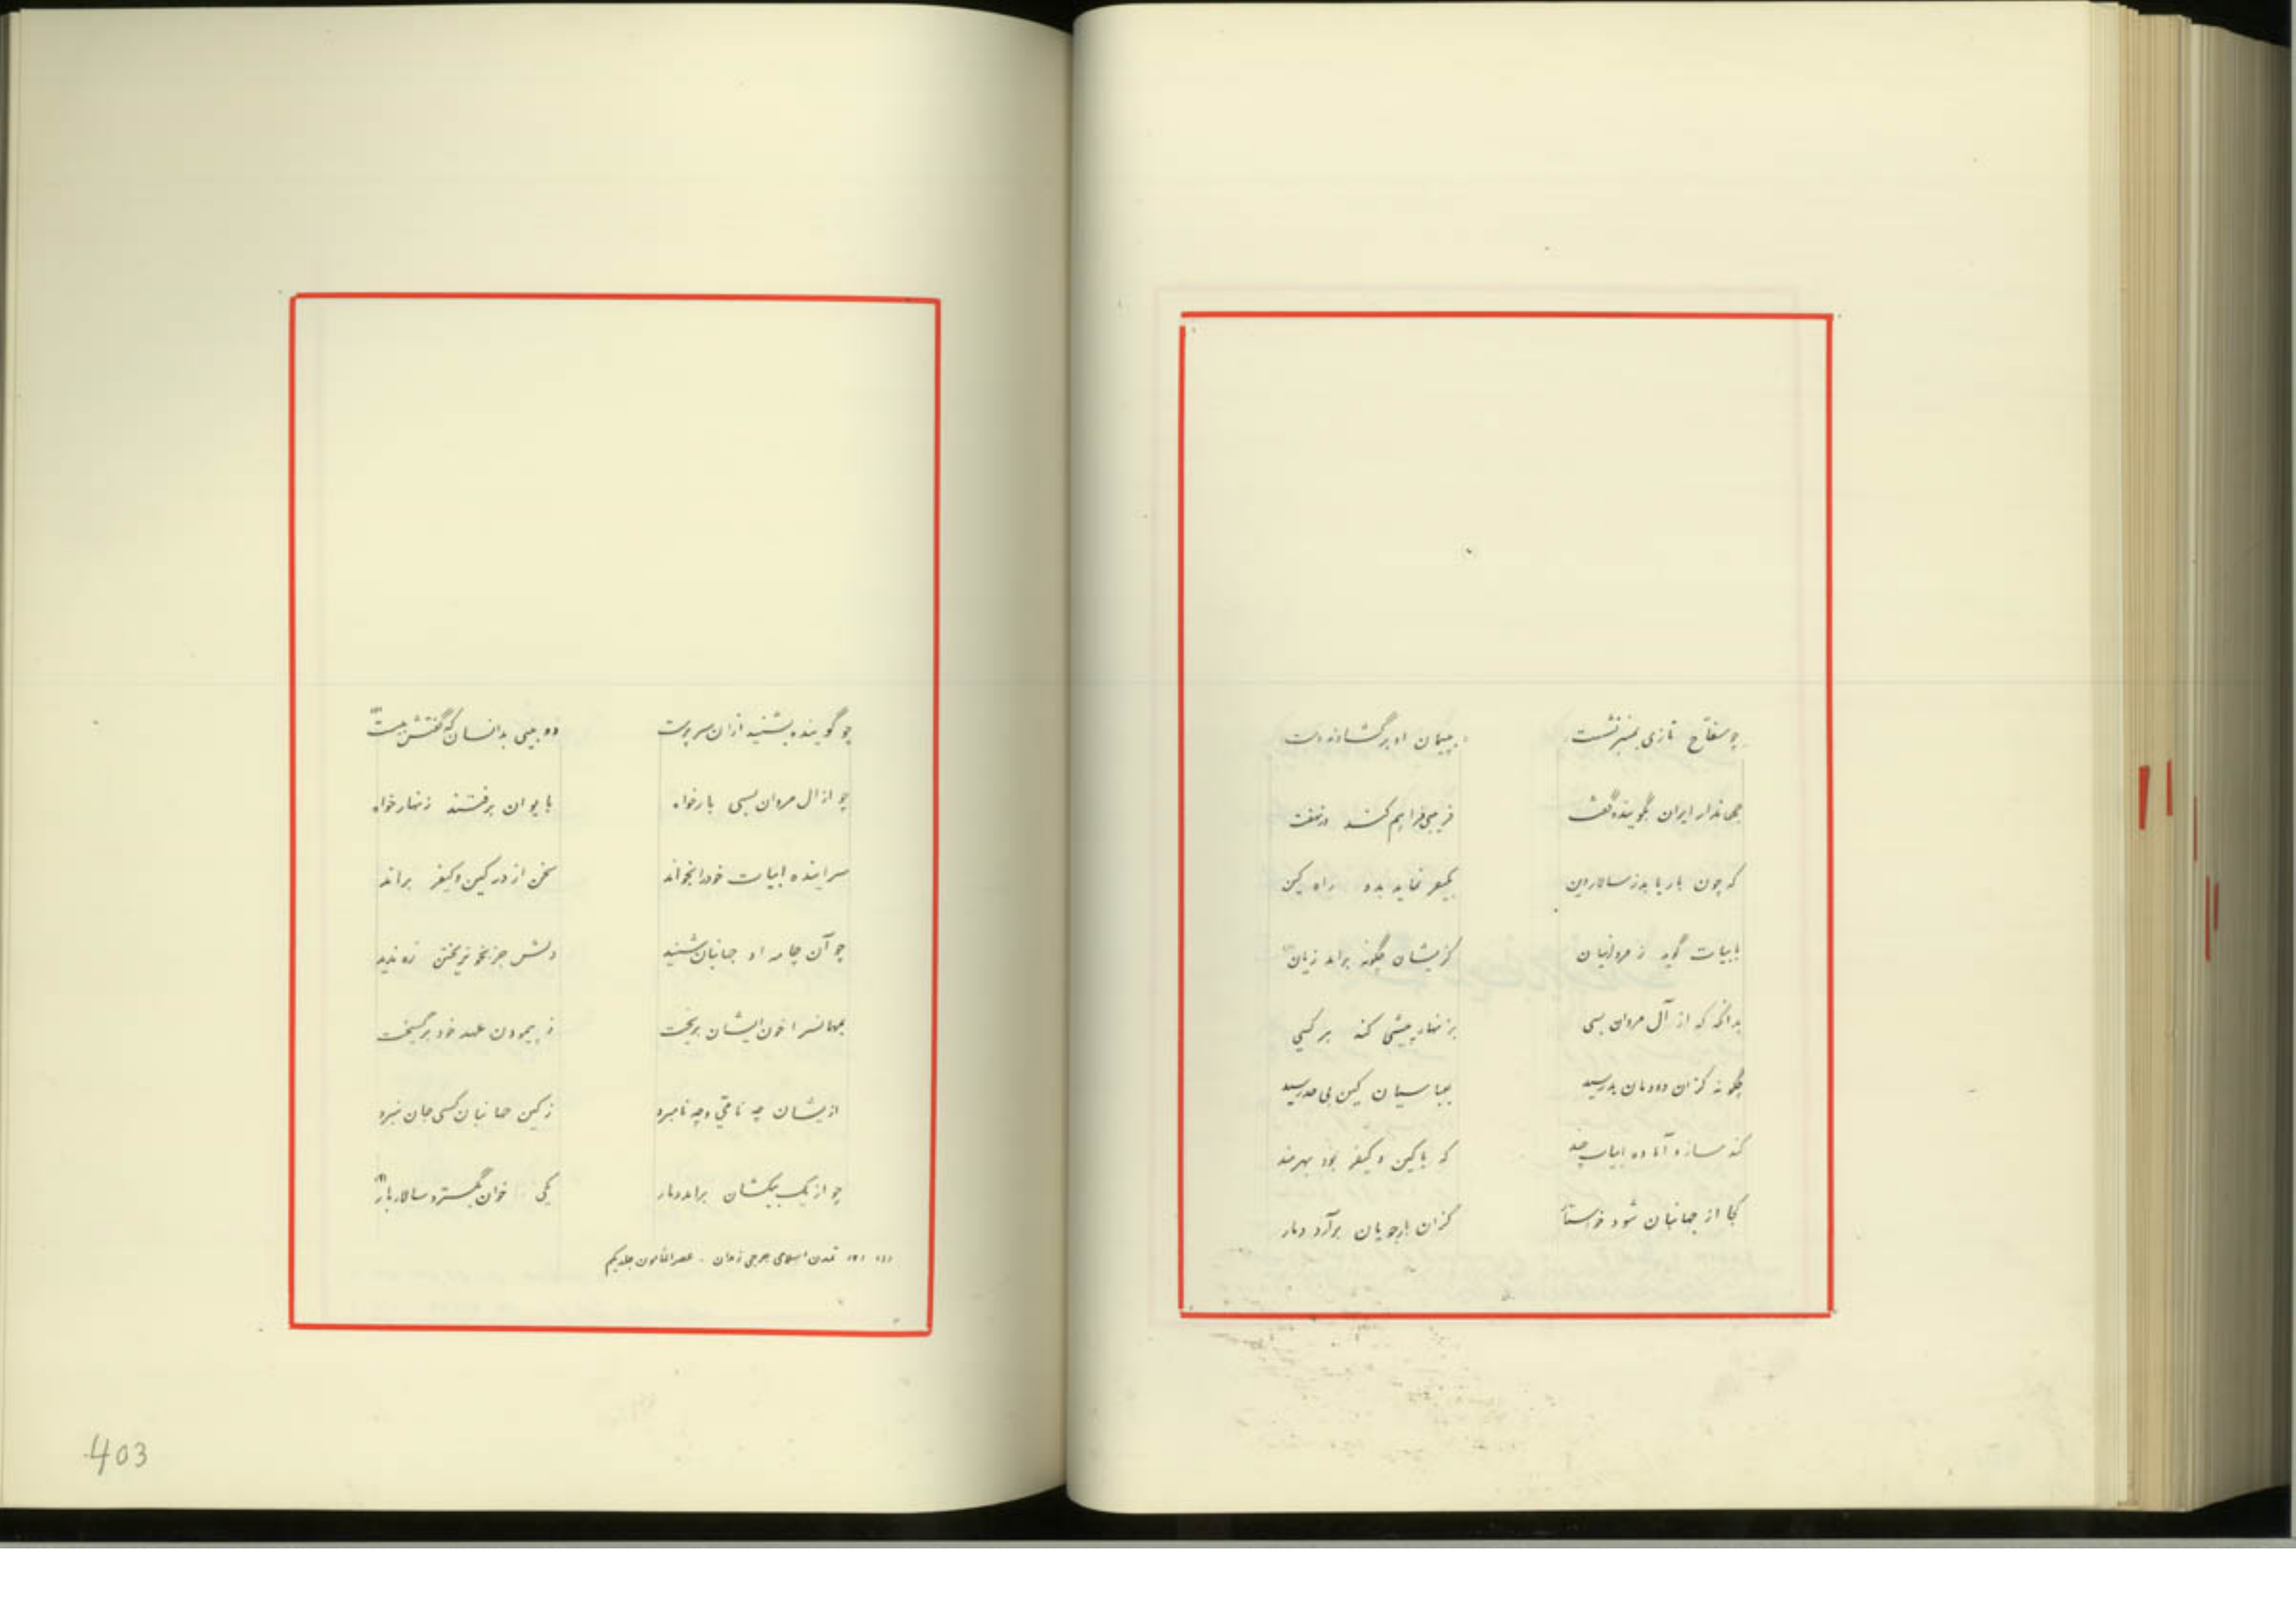 چو سفاح تازی بمنبر نشست
به پیمان او برگشادند دست
جهاندار ایران بگوینده گفت
فریبی فراهم کند در نهفت
که چون بار یابد ز سالار دین
بکیفر نماید بدو راه کین
بابیات گوید ز مروانیان
کزیشان چگونه براند زبان
بدانگه که از آل مروان بسی
بزنهار پیشی کند هر کسی
چگونه کزان دودمان بد رسید
بعباسیان کین بی حد رسید
کند ساز و آماده ابیات چند
که با کین و کیفر بود بهرمند
کجا از جهانبان شود خواستار
کزان بارجویان برآرد دمار
چو گوینده بشنید ازان سرپرست
ده بیتی بدانسان که گفتش ببست (۱)
چو از آل مروان بسی بارخواه
بایوان برفتند زنهار خواه
سراینده ابیات خود را بخواند
سخن از در کین و کیفر براند
چو آن چامه او جهانبان شنید
دلش جز بخونریختن ره ندید
بهمانسرا خون ایشان بریخت
ز پیمودن عهد خود برگسیخت
ازیشان چه نامی و چه نامبرد
ز کین جهانبان کسی جان نبرد
چو از یک بیکشان برآمد دمار
یکی خوان بگسترد سالار بار (۲)
(۱) (۲) تمدن اسلامی جرجی زیدان - عصر المأمون جلد یکم
403